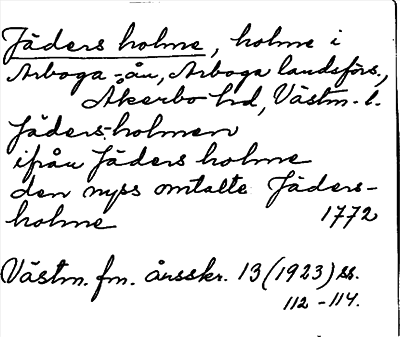 Jäders holme, holme i
Arboga-ån, Arboga landsförs.,
Åkerbo hd, Västm. l.
Jäders-holmen
ifrån Jäders holme
den nyss omtalte Jäders-
holme 1772
Västm. fm. årsskr. 13 (1923) ss.
112-114.